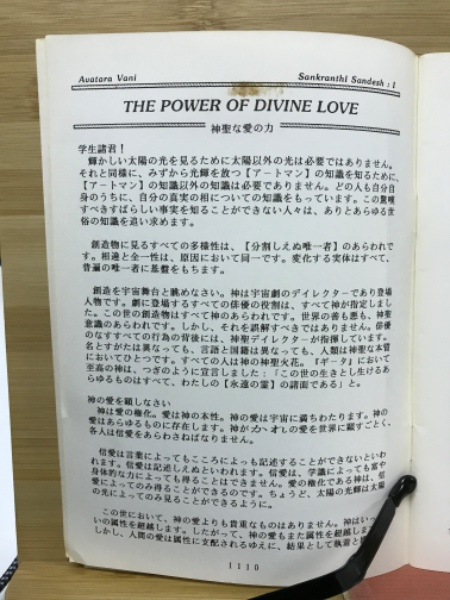 Avatara Vani
Sankranthi Sandesh : 1
THE POWER OF DIVINE LOVE
神聖な愛の力
学生諸君！
輝かしい太陽の光を見るために太陽以外の光は必要ではありません。
それと同様に、みずから光輝を放つ【アートマン】の知識を知るために、
【アートマン】の知識以外の知識は必要でありません。どの人も自分自
身のうちに、自分の真実の相についての知識をもっています。この驚嘆
すべきすばらしい事実を知ることができない人々は、ありとあらゆる世
俗の知識を追い求めます。
創造物に見るすべての多様性は、【分割しえぬ唯一者】のあらわれで
す。相違と全一性は、原因において同一です。変化する実体はすべて、
普遍の唯一者に基盤をもちます。
創造を宇宙舞台と眺めなさい。神は宇宙劇のディレクターであり登場
人物です。劇に登場するすべての俳優の役割は、すべて神が指定しまし
た。この世の創造物はすべて神のあらわれです。世界の善も悪も、神聖
意識のあらわれです。しかし、それを誤解すべきではありません。俳優
のなすすべての行為の背後には、神聖ディレクターが指揮しています。
名とすがたは異なっても、言語と国籍は異なっても、人類は神聖な本質
においてひとつです。すべての人は神の神聖火花。『ギータ』において
至高の神は、つぎのように宣言しました：「この世の生きとし生けるあ
らゆるものはすべて、わたしの【永遠の霊】の諸面である」と。
神の愛を顕しなさい
神は愛の権化。愛は神の本性。神の愛は宇宙に満ちわたります。神の
愛はあらゆるものに存在します。神が の愛を世界に顕すごとく、
各人は信愛をあらわさねばなりません。
信愛は言葉によってもこころによっも記述することができないといわ
れます。信愛は記述しえぬといわれます。信愛は、学識によっても富や
身体的な力によっても得ることはできません。愛の権化である神は、信
愛によってのみ得ることができるのです。ちょうど、太陽の光輝は太陽
の光によってのみ見ることができるように。
この世において、神の愛よりも貴重なものはありません。神はいっ
いの属性を超越します。したがって、神の愛もまた属性を超越しま
しかし、人間の愛は属性に支配されるゆえに、結果として執着と
1110